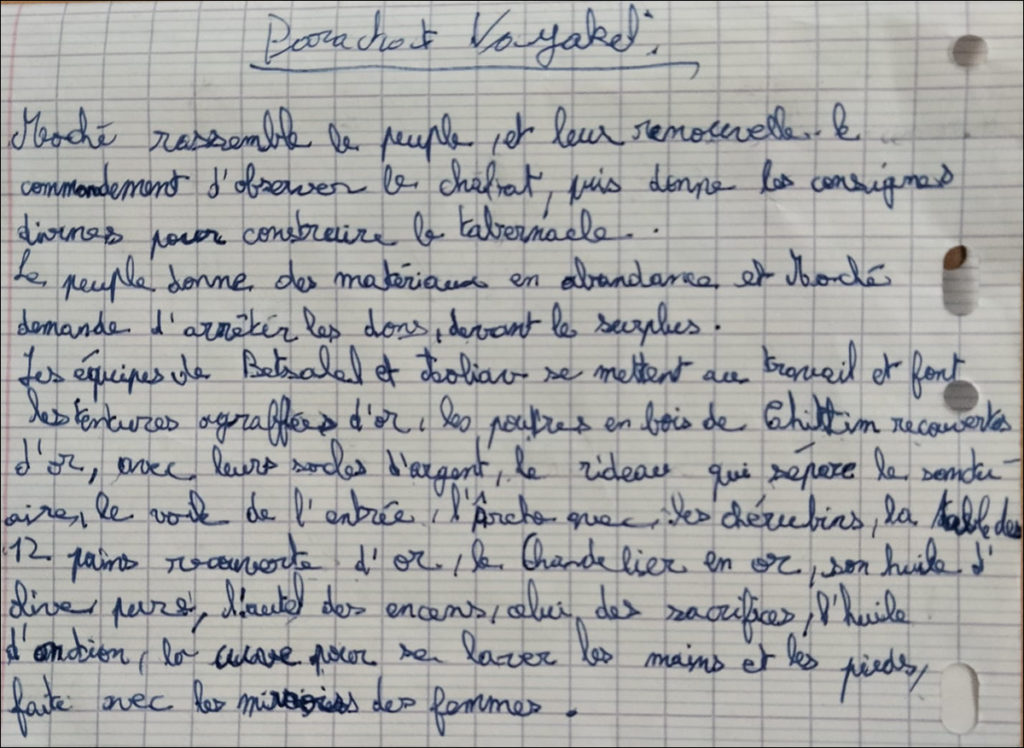 Parachat Vayakel.
Moché rassemble le peuple, et leur renouvelle le
commandement d'observer le chabat, puis donne les consignes
divines pour construire le tabernacle.
Le peuple donne des matériaux en abondance et Moché
demande d'arrêter les dons, devant le surplus.
Les équipes de Betsalel et Aoliav se mettent au travail et font
les tentures agraffées d'or, les poutres en bois de Chittim recouvertes
d'or, avec leurs socles d'argent, le rideau qui sépare le sanctu-
aire, le voile de l'entrée, l'Arche avec les chérubins, la table des
12 pains recouverte d'or, le Chandelier en or, son huile d'
olive pure, l'autel des encens, celui des sacrifices, l'huile
d'onction, la cuave pour se laver les mains et les pieds,
faite avec les miroirs des femmes.